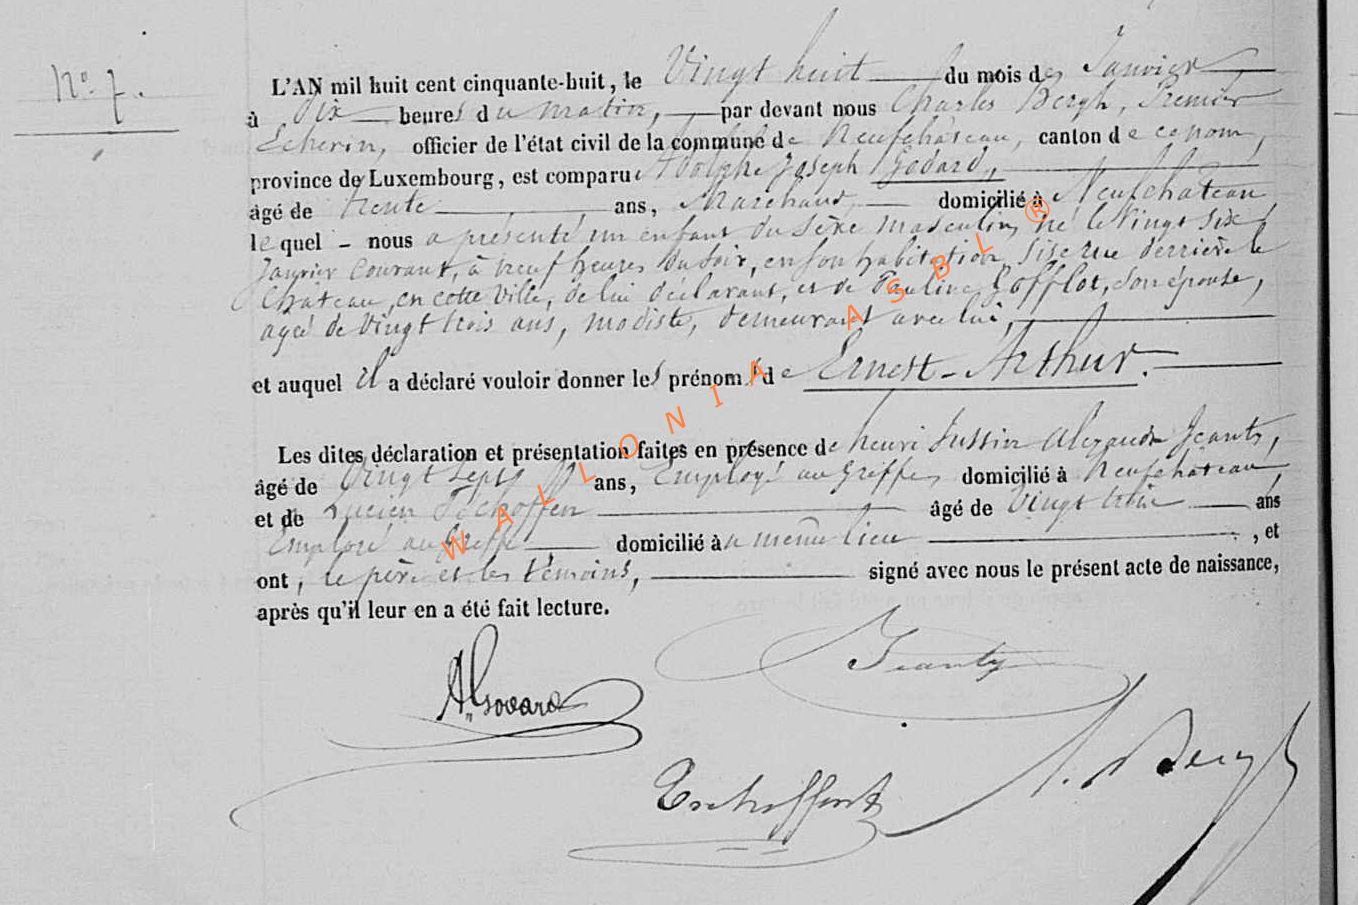 N° 7.
L'AN mil huit cent cinquante-huit, le Vingt huit du mois de Janvier
à Dix heures du matin, par devant nous Charles Bergh, Premier
Echevin, officier de l'état civil de la commune de Neufchâteau, canton de ce nom,
province de Luxembourg, est comparu Adolphe Joseph Godard,
âgé de trente ans, Marchand, domicilié à Neufchâteau
lequel nous a présenté un enfant du sexe masculin, né le Vingt six
Janvier courant, à neuf heures du soir, en son habitation, sise rue derrière le
Château, en cette Ville, de lui déclarant, et de Pauline son épouse,
agée de Vingt trois ans, modiste, demeurant avec lui,
et auquel il a déclaré vouloir donner les prénoms de Ernest-Arthur.
Les dites déclaration et présentation faites en présence de henri Alexandre Jeanty,
âgé de Vingt sept ans, Employé au Greffe, domicilié à Neufchateau
et de Lucien Tschoffen âgé de Vingt trois ans
Employé au Greffe domicilié au même lieu , et
ont, le père et les témoins, signé avec nous le présent acte de naissance,
après qu'il leur en a été fait lecture.
Jeanty
A. Godard
Tschoffen
Bergh
WALLONIA ASBL ®